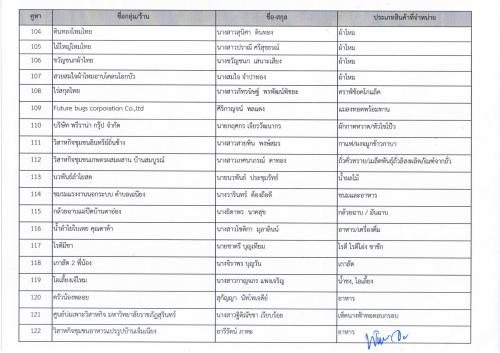 คูหา ชื่อกลุ่ม/ร้าน ชื่อ-สกุล ประเภทสินค้าที่จำหน่าย
104 ดินทองไหมไทย นางสาวสุนิศา ดินทอง ผ้าไหม
105 ไม้ใหญ่ไหมไทย นางสาวปราณี ศรีสุขธรณ์ ผ้าไหม
106 ขวัญชนกผ้าไทย นางขวัญชนก เสนาะเสียง ผ้าไหม
107 สวยสมใจผ้าไหมอาบโคลนโอกบัว นางสมใจ จำปาทอง ผ้าไหม
108 ไร่สกุลไทย นางสาวภัทรนิษฐ์ พรพัฒน์พิชยะ คราฟช็อคโกแล็ต
109 Future bugs corporation Co.,ltd ศิริกาญจน์ พลแดง แมลงทอดพร้อมทาน
110 บริษัท พรีราน่า กรุ๊ป จำกัด นายกฤศกร เจียรวัฒนากร ผักกาดหวาน/หัวไชโป๊ว
111 วิสาหกิจชุมชนอินทรีย์ถิ่นช้าง นางสาวสายพิน พงษ์สมร กาแฟ/ผงจมูกข้าวกาบา
112 วิสาหกิจชุมชนเกษตรผสมผสาน บ้านสมบูรณ์ นางสาวเกศนภรณ์ ดาทอง ถั่วคั่วทราย/เมล็ดพันธุ์ถั่วลิสงผลิตภัณฑ์จากถั่ว
113 นวพันธ์ลำไยสด นายนวพันธ์ ประชุมวิทย์ น้ำผลไม้
114 ชมรมแรงงานนอกระบบ ตำบลเฉนียง นางวารินทร์ ต้องถือดี ขนมและอาหาร
115 กล้วยฉาบแม่ปิดบ้านตาอ่อง นางธิดาพร นาคสุข กล้วยฉาบ / มันฉาบ
116 น้ำลำไยใบเตย คุณตาต้า นางสาวโชติกา มุลาลินน์ อาหาร/เครื่องดื่ม
117 โรตีมีชา นายชาตรี บุญเทียม โรตี โรตีโอ่ง ชาชัก
118 เกาลัด 2 พี่น้อง นางจิราพร บุญวัน เกาลัด
119 โอเลี้ยงเจ๊ไหม นางสาวกาญจภร แพงเจริญ น้ำชง, โอเลี้ยง
120 ครัวน้องพลอย สุกัญญา นัทโทเจดีย์ อาหาร
121 ศูนย์บ่มเพาะวิสาหกิจ มหาวิทยาลัยราชภัฏสุรินทร์ นางสาวฐิติณัชชา เรียบร้อย เห็ดนางฟ้าทอดอบกรอบ
122 วิสาหกิจชุมชนอาหารแปรรูปบ้านเจ็มเนียง อารีรัตน์ ภาคะ อาหาร